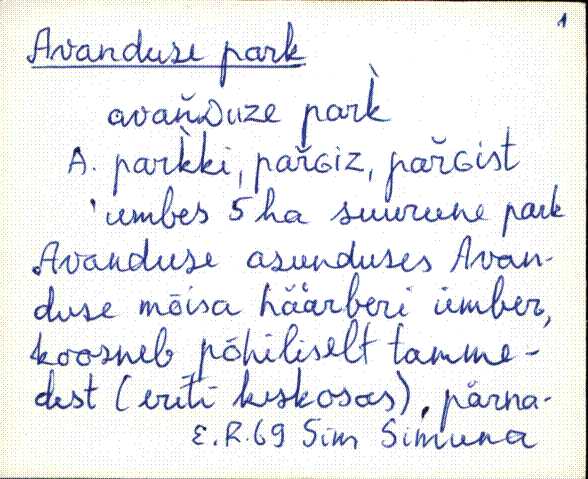 1
Avanduse park
avan̆Duze park̀
A. park̀ki, par̆Giz, par̆Gist
'umbes 5 ha suurune park
Avanduse asunduses Avan-
duse mõisa häärberi ümber,
koosneb põhiliselt tamme-
dest (eriti keskosas), pärna-
E.R.69 Sim Simuna